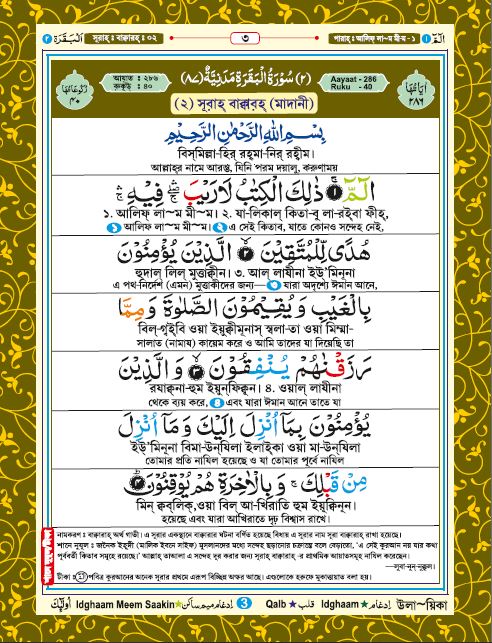 ২ اَلْبَقَرَة সূরাহ্: বাক্বারহ্: ০২ ৩ পারাহ্: আলিফ্ লা~ম মী~ম - ১ الٓمّٓ ١
আয়াত : ২৮৬
রুকুউ : ৪০
(٢) سُوْرَةُ الْبَقَرَةِ مَدَنِيَّةٌ (٨٧)
Aayaat - 286
Ruku - 40
رُكُوْعَاتُهَا ٤٠
(২) সূরাহ্ বাক্বারহ্ (মাদানী)
اٰيَاتُهَا ٢٨٦
بِسْمِ اللّٰهِ الرَّحْمٰنِ الرَّحِيْمِ
বিস্‌মিল্লা-হির্ রহ্‌মা-নির্ রহ্বীম।
আল্লাহ্‌র নামে আরম্ভ, যিনি পরম দয়ালু, করুণাময়
الٓمّٓ ۚ ١ ذٰلِكَ الْكِتٰبُ لَا رَيْبَ ۛ فِيْهِ ۛ
১. আলিফ্ লা~ম মী~ম। ২. যা-লিকাল্ কিতা-বু লা-রইবা ফীহ্,
১ আলিফ লা~ম মী~ম। ২ এ সেই কিতাব, যাতে কোনও সন্দেহ নেই,
هُدًى لِّلْمُتَّقِيْنَ ۙ ٢ الَّذِيْنَ يُؤْمِنُوْنَ
হুদাল্ লিল্ মুত্তাক্বীন। ৩. আল্ লাযীনা ইউ’মিনূনা
এ পথ-নির্দেশ (এমন) মুত্তাকীদের জন্য— ৩ যারা অদৃশ্যে ঈমান আনে,
بِالْغَيْبِ وَيُقِيْمُوْنَ الصَّلٰوةَ وَمِمَّا
বিল্-গ্বইবি ওয়া ইয়ুক্বীমূনাস্ স্বলা-তা ওয়া মিম্মা-
সালাত (নামায) কায়েম করে ও আমি তাদের যা দিয়েছি তা
رَزَقْنٰهُمْ يُنْفِقُوْنَ ۙ ٣ وَالَّذِيْنَ
রযাক্বনা-হুম ইয়ুন্‌ফিক্বূন। ৪. ওয়াল্ লাযীনা
থেকে ব্যয় করে, ৪ এবং যারা ঈমান আনে তাতে যা
يُؤْمِنُوْنَ بِمَآ اُنْزِلَ اِلَيْكَ وَمَآ اُنْزِلَ
ইউ’মিনূনা বিমা-উন্‌যিলা ইলাইকা ওয়া মা-উন্‌যিলা
তোমার প্রতি নাযিল হয়েছে ও যা তোমার পূর্বে নাযিল
مِنْ قَبْلِكَ ۚ وَبِالْاٰخِرَةِ هُمْ يُوْقِنُوْنَ ؕ ٤
মিন্ ক্বব্‌লিক্,ওয়া বিল্ আ-খিরাতি হুম ইয়ূক্বিনূন।
হয়েছে এবং যারা আখিরাতে দৃঢ় বিশ্বাস রাখে।
নামকরণ : বাক্বারাহ্ অর্থ গাভী। এ সূরার একস্থানে বাক্বারার ঘটনা বর্ণিত হয়েছে বিধায় এ সূরার নাম সূরা বাক্বারাহ্ রাখা হয়েছে।
শানে নুযূল : জনৈক ইহূদী (মালিক ইবনে সাইফ) মুসলমানদের মধ্যে সন্দেহ ছড়ানোর চক্রান্তে বলে বেড়াতো, ‘এ সেই কুরআন নয় যার কথা
পূর্ববর্তী কিতাব সমূহে রয়েছে।’ আল্লাহ্ তাআলা এ সন্দেহ দূর করার জন্য সূরাহ্ বাক্বারাহ্ -র প্রাথমিক আয়াতসমূহ নাযিল করেছেন।
—লুবাবুন্-নুক্বূল।
টীকা : পবিত্র কুরআনের অনেক সূরার প্রথমে এরূপ বিচ্ছিন্ন অক্ষর আছে। এগুলোকে হরূফে মুকাত্ত্বায়াত বলা হয়।
اُولٰٓئِكَ Idghaam Meem Saakin ★ اِدْغَام مِيْم سَاكِنْ 3 Qalb ★ قَلْب Idghaam ★ اِدْغَام উলা~য়িকা